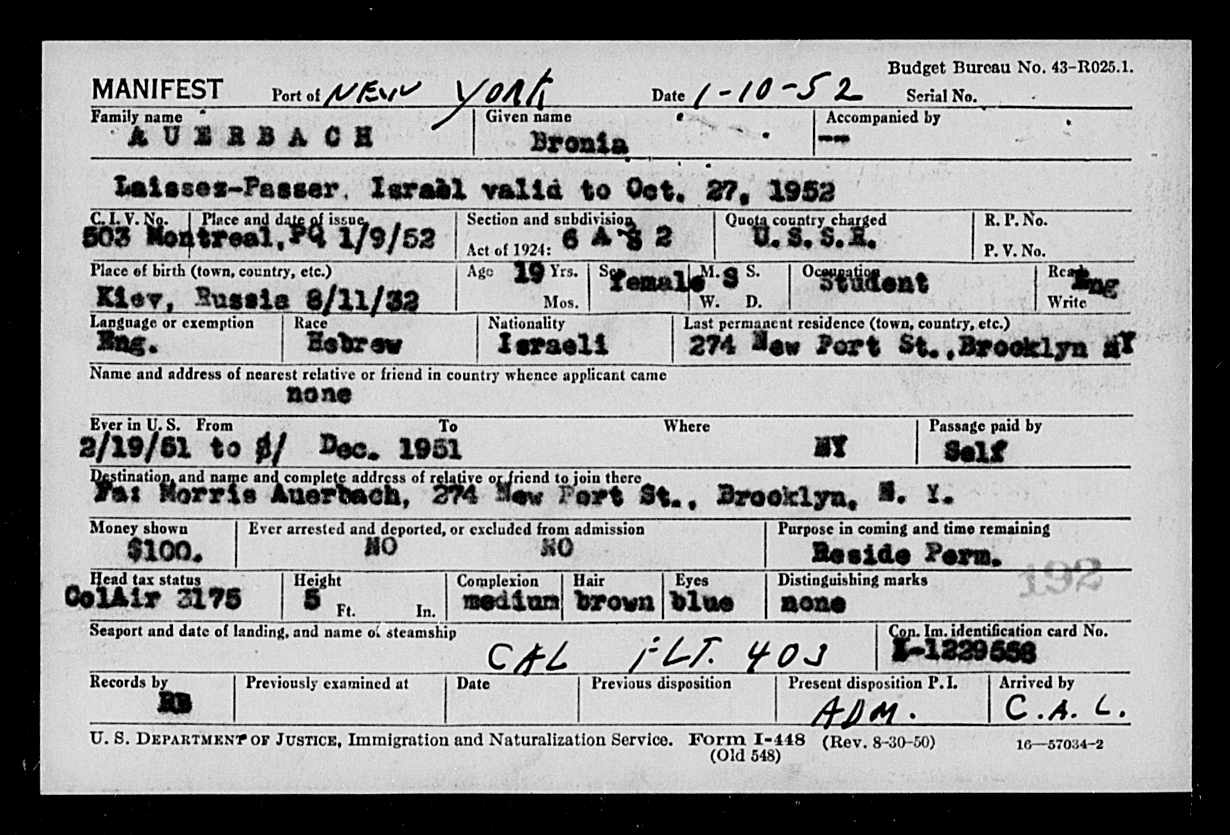 Budget Bureau No. 43-R025.1.
MANIFEST Port of NEW YORK Date 1-10-52 Serial No.
Family name Given name Accompanied by
AUERBACH Bronia --
Laissez-Passer. Israel valid to Oct. 27, 1952
C. I. V. No. Place and date of issue Section and subdivision Quota country charged R. P. No.
503 Montreal, PQ 1/9/52 Act of 1924: 6 A 2 U.S.S.R. P. V. No.
Place of birth (town, country, etc.) Age 19 Yrs. Sex female M. S S. Occupation Student Read Eng
Kiev, Russia 8/11/32 Mos. W. D. Write
Language or exemption Race Nationality Last permanent residence (town, country, etc.)
Eng. Hebrew Israeli 274 New Port St., Brooklyn NY
Name and address of nearest relative or friend in country whence applicant came
none
Ever in U. S. From To Where Passage paid by
2/19/51 to / Dec. 1951 NY Self
Destination, and name and complete address of relative or friend to join there
Fa: Morris Auerbach, 274 New Port St., Brooklyn, N. Y.
Money shown Ever arrested and deported, or excluded from admission Purpose in coming and time remaining
$100. NO NO Reside Perm.
192
Head tax status Height Complexion Hair Eyes Distinguishing marks
ColAir 3175 5 Ft. In. medium brown blue none
Seaport and date of landing, and name of steamship Con. Im. identification card No.
CAL FLT. 403 I-1229558
Records by Previously examined at Date Previous disposition Present disposition P. I. Arrived by
RB ADM. C.A.L.
U. S. DEPARTMENT OF JUSTICE, Immigration and Naturalization Service. Form I-448 (Rev. 8-30-50) 16—57034-2
(Old 548)